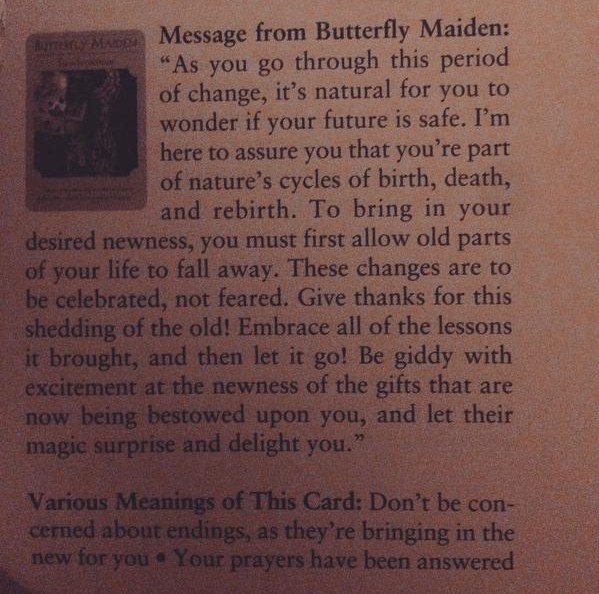 BUTTERFLY MAIDEN
Message from Butterfly Maiden:
“As you go through this period
of change, it’s natural for you to
wonder if your future is safe. I’m
here to assure you that you’re part
of nature’s cycles of birth, death,
and rebirth. To bring in your
desired newness, you must first allow old parts
of your life to fall away. These changes are to
be celebrated, not feared. Give thanks for this
shedding of the old! Embrace all of the lessons
it brought, and then let it go! Be giddy with
excitement at the newness of the gifts that are
now being bestowed upon you, and let their
magic surprise and delight you.”
Various Meanings of This Card: Don’t be con-
cerned about endings, as they’re bringing in the
new for you • Your prayers have been answered